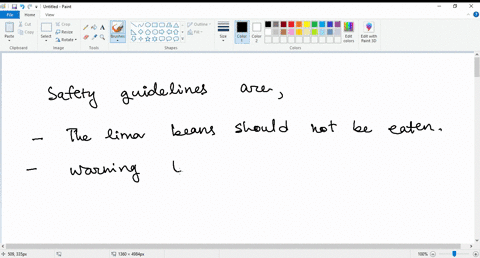 Untitled - Paint
File Home View
Paste Cut Copy Select Crop Resize Rotate Brushes Outline Fill Size Color 1 Color 2 Edit colors Edit with Paint 3D
Clipboard Image Tools Shapes Colors
Safety guidelines are,
- The lima beans should not be eaten.
- warning (
509, 335px 1380 × 4984px 100%